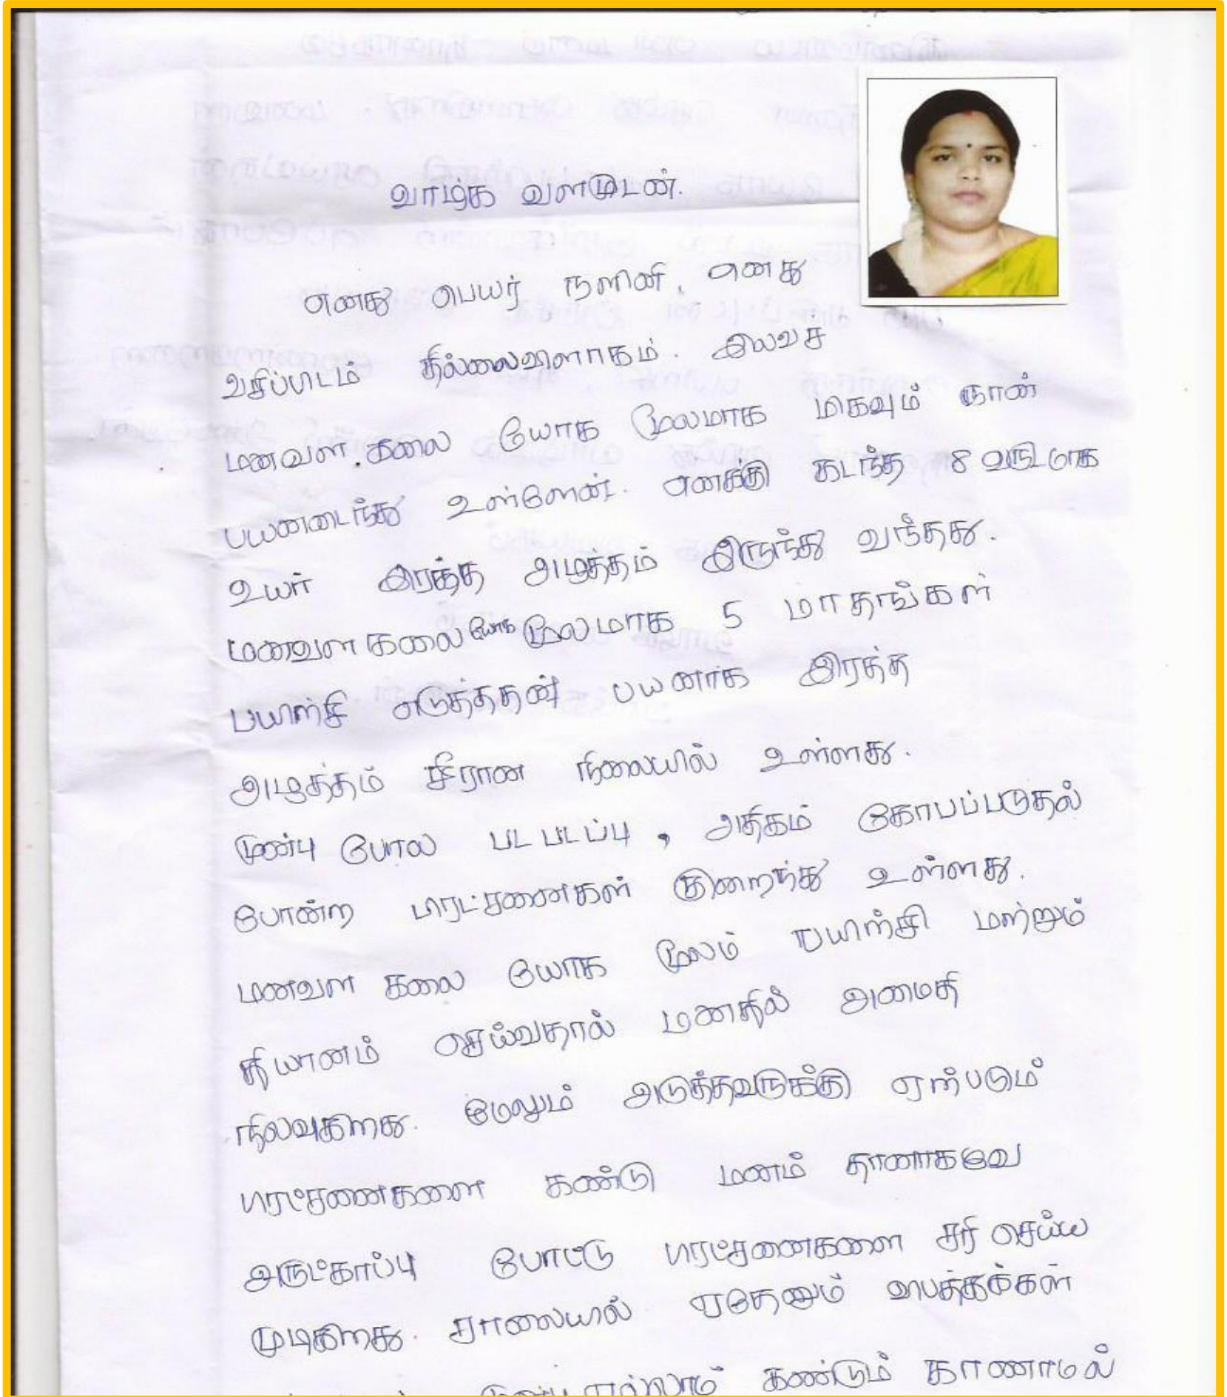 வாழ்க வளமுடன்.
எனது பெயர் நளினி, எனது
வசிப்பிடம் தில்லைவிளாகம். இலவச
மனவளகலை யோக மூலமாக மிகவும் நான்
பயனடைந்து உள்ளேன். எனக்கு கடந்த 8 வருடமாக
உயர் இரத்த அழுத்தம் இருந்து வந்தது.
மனவளகலை யோக மூலமாக 5 மாதங்கள்
பயிற்சி எடுத்ததன் பயனாக இரத்த
அழுத்தம் சீரான நிலையில் உள்ளது.
முன்பு போல படபடப்பு, அதிகம் கோபப்படுதல்
போன்ற பிரட்சனைகள் குறைந்து உள்ளது.
மனவள கலை யோக மூலம் பயிற்சி மற்றும்
தியானம் செய்வதால் மனதில் அமைதி
நிலவுகிறது. மேலும் அடுத்தவருக்கு ஏற்படும்
பிரட்சனைகளை கண்டு மனம் தானாகவே
அருட்காப்பு போட்டு பிரட்சனைகளை சரி செய்ய
முடிகிறது. சாலையில் ஏதேனும்
எல்லாம் கண்டும் காணாமல்